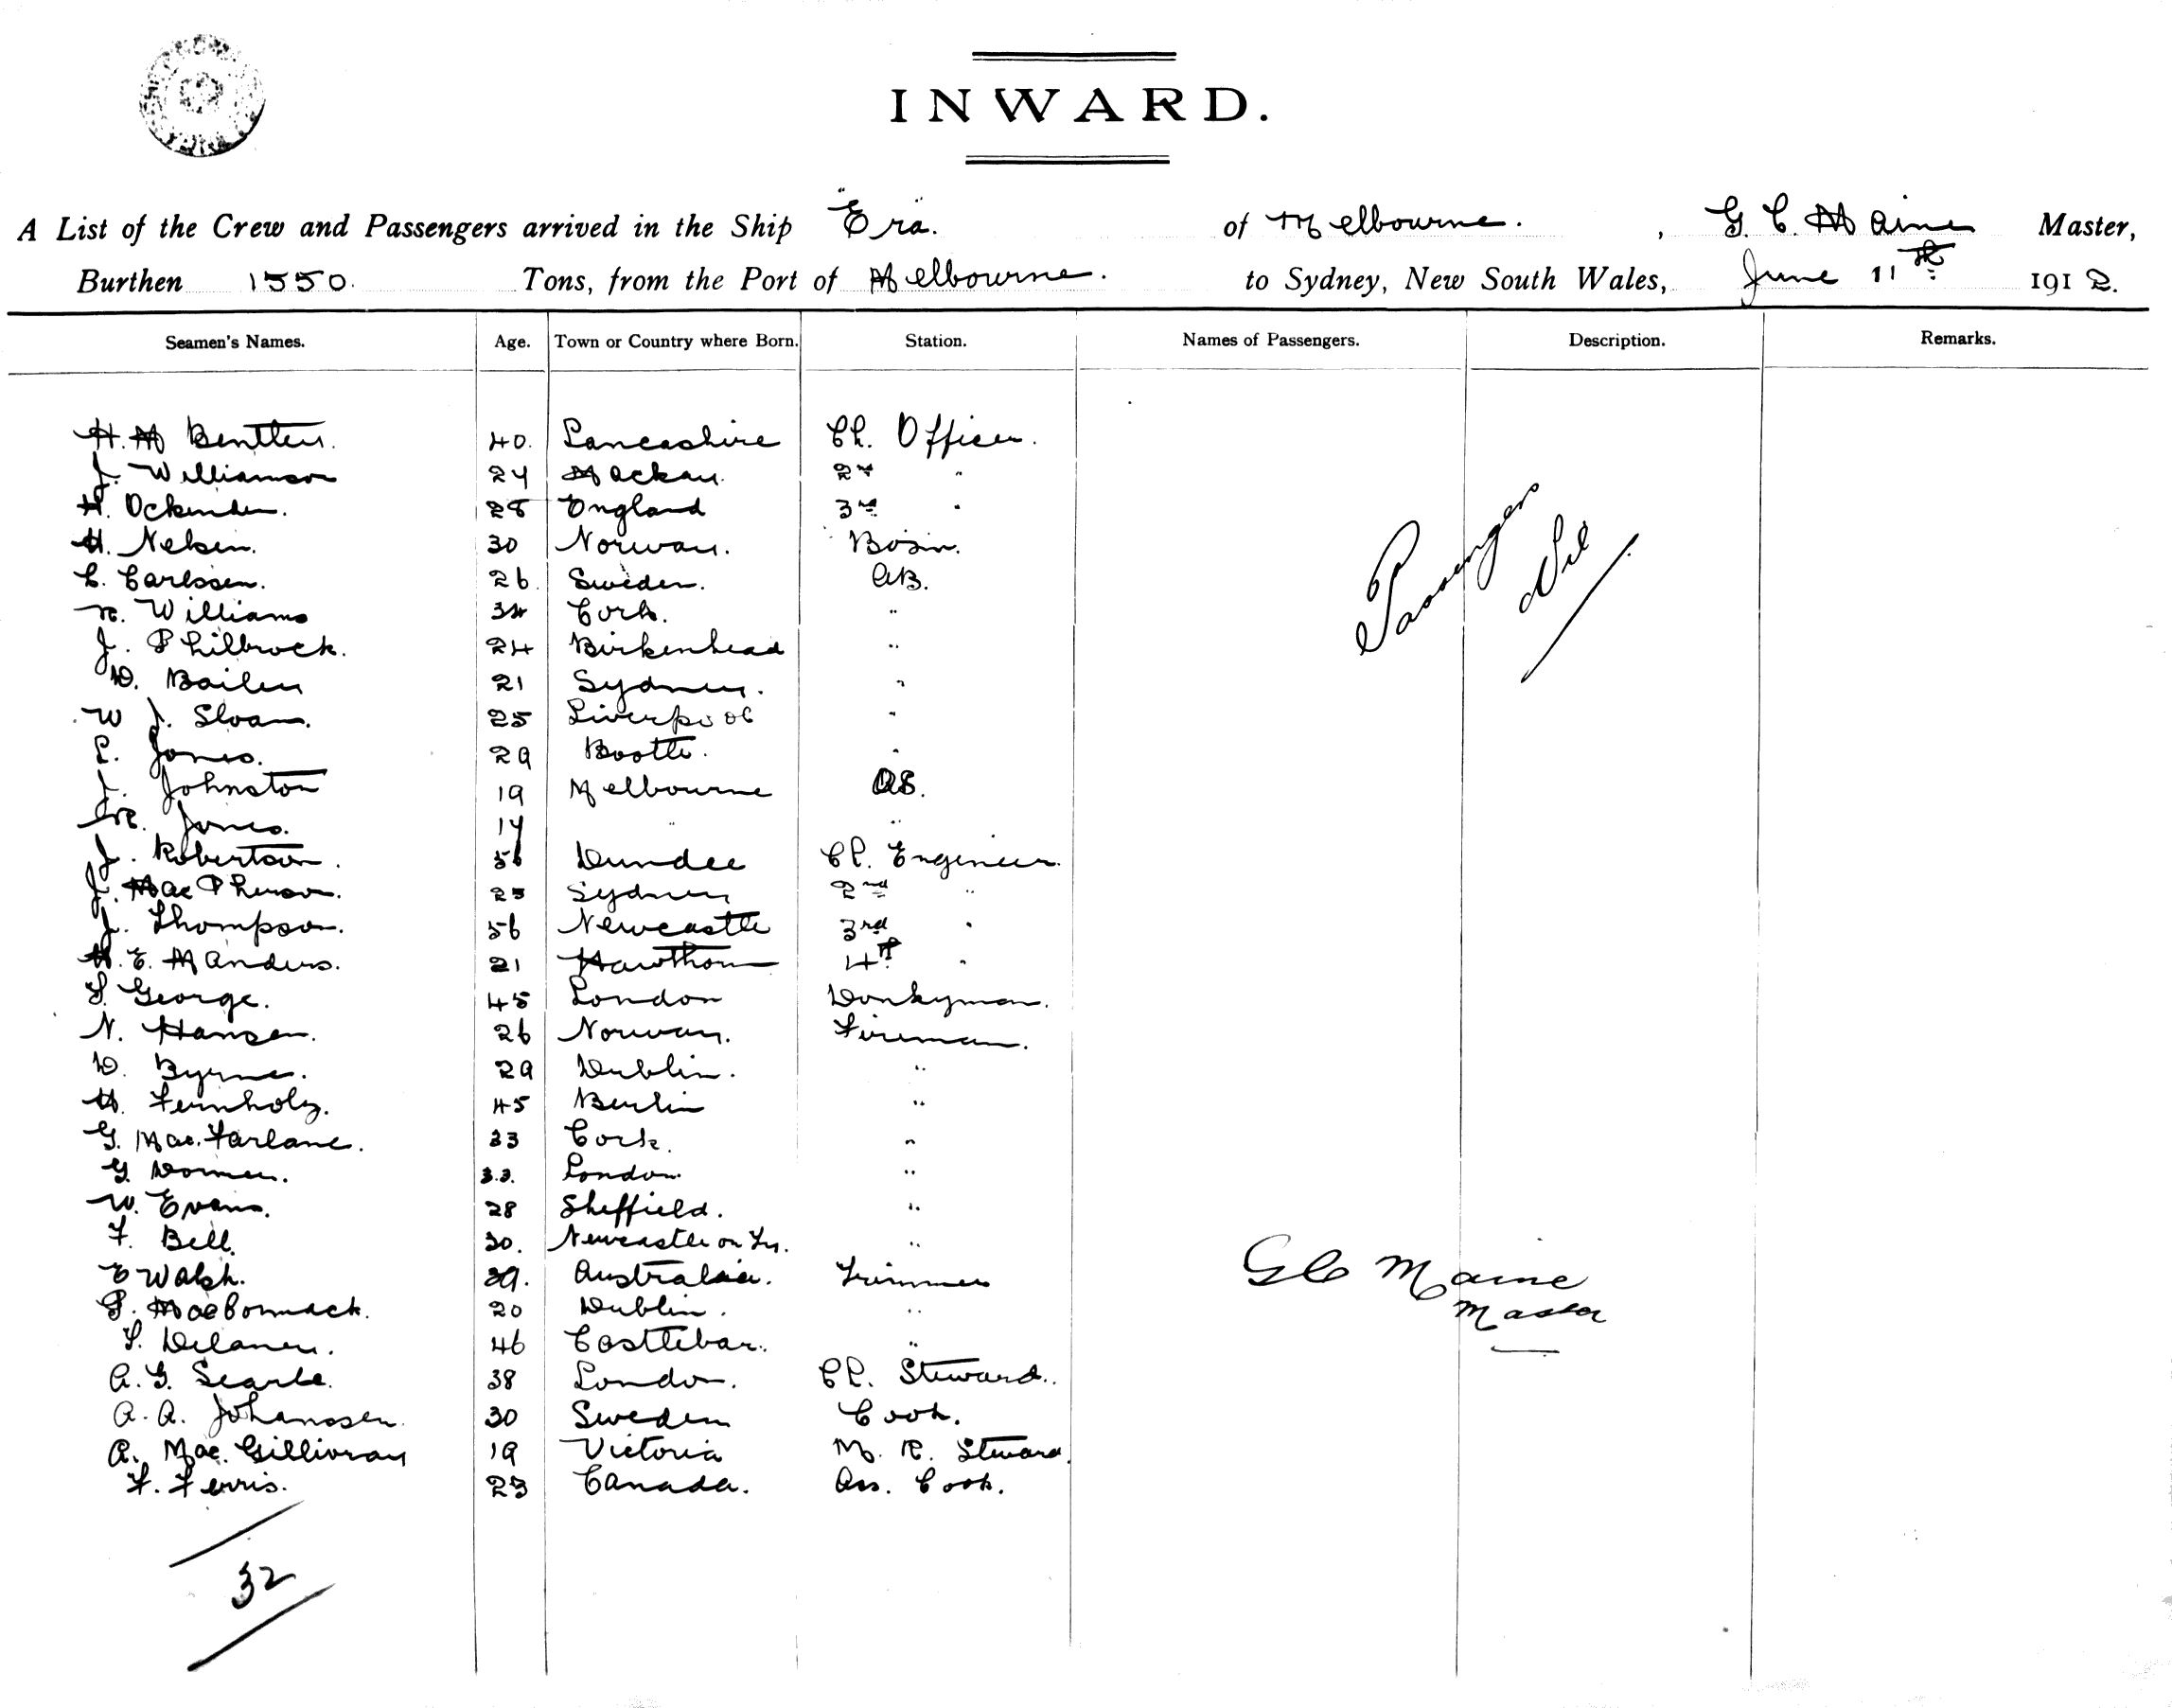 INWARD.
A List of the Crew and Passengers arrived in the Ship "Era." of Melbourne. , G. C. Maine Master,
Burthen 1550. Tons, from the Port of Melbourne. to Sydney, New South Wales, June 11th 1912.
Seamen's Names. Age. Town or Country where Born. Station. Names of Passengers. Description. Remarks.
H. M 40. Lancashire Ch. Officer.
J. Williamson 24 Mackay. 2nd "
H. Ockenden. 28 England 3rd "
H. Nelsen. 30 Norway. Bosin.
C. Carlssen. 26. Sweden. AB.
R. Williams 34 Cork. "
J. Philbrock. 24 Birkenhead "
D. Bailey 21 Sydney. "
W J. Sloan. 25 Liverpool "
L. Jones. 29 Bootle. "
J. Johnston 19 Melbourne OS.
R. Jones. 19 " "
J. Robertson. 56 Dundee Ch. Engineer.
J. MacPherson. 25 Sydney 2nd "
J. Thompson. 56 Newcastle 3rd "
H. E. Manders. 21 Hawthorn 4th "
S. George. 45 London Donkyman.
N. Hansen. 26 Norway. Fireman.
D. Byrne. 29 Dublin. "
H. Fernholz. 45 Berlin "
G. Mac. Farlane. 33 Cork. "
G. 33. London. "
W. Evans. 28 Sheffield. "
F. Bell. 30. Newcastle on Ty. "
E Walsh. 29. Australia. Trimmer
P. MacCormack. 20 Dublin. "
S. Delaney. 46 Castlebar. "
A. G. Searle. 38 London. Ch. Steward.
A. A. Johanssen. 30 Sweden Cook.
A. Mac. Gillivray 19 Victoria M. R. Steward.
F. Ferris. 23 Canada. Ass. Cook.
32
Passengers
Nil
G C Maine
Master